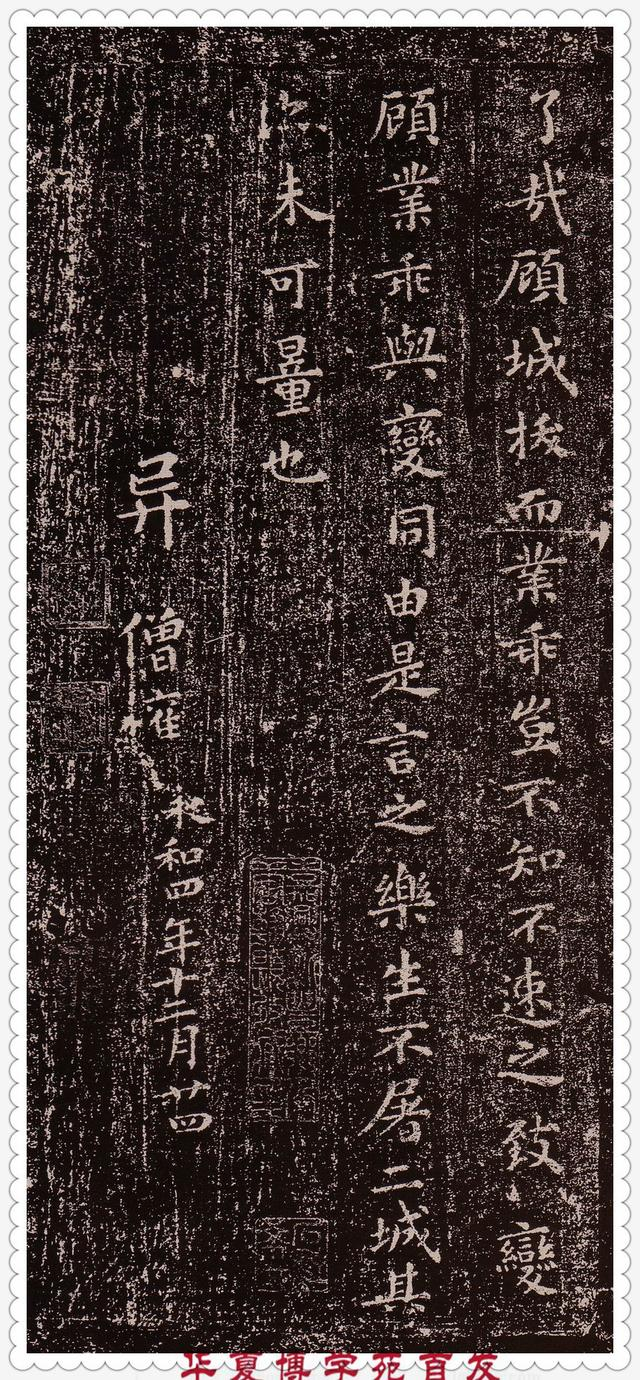 了㢤顧城拔而業乖豈不知不速之致變
顧業乖與變同由是言之樂生不屠二城其
未可量也
异 僧權
永和四年十二月廿四
华夏博学苑首发